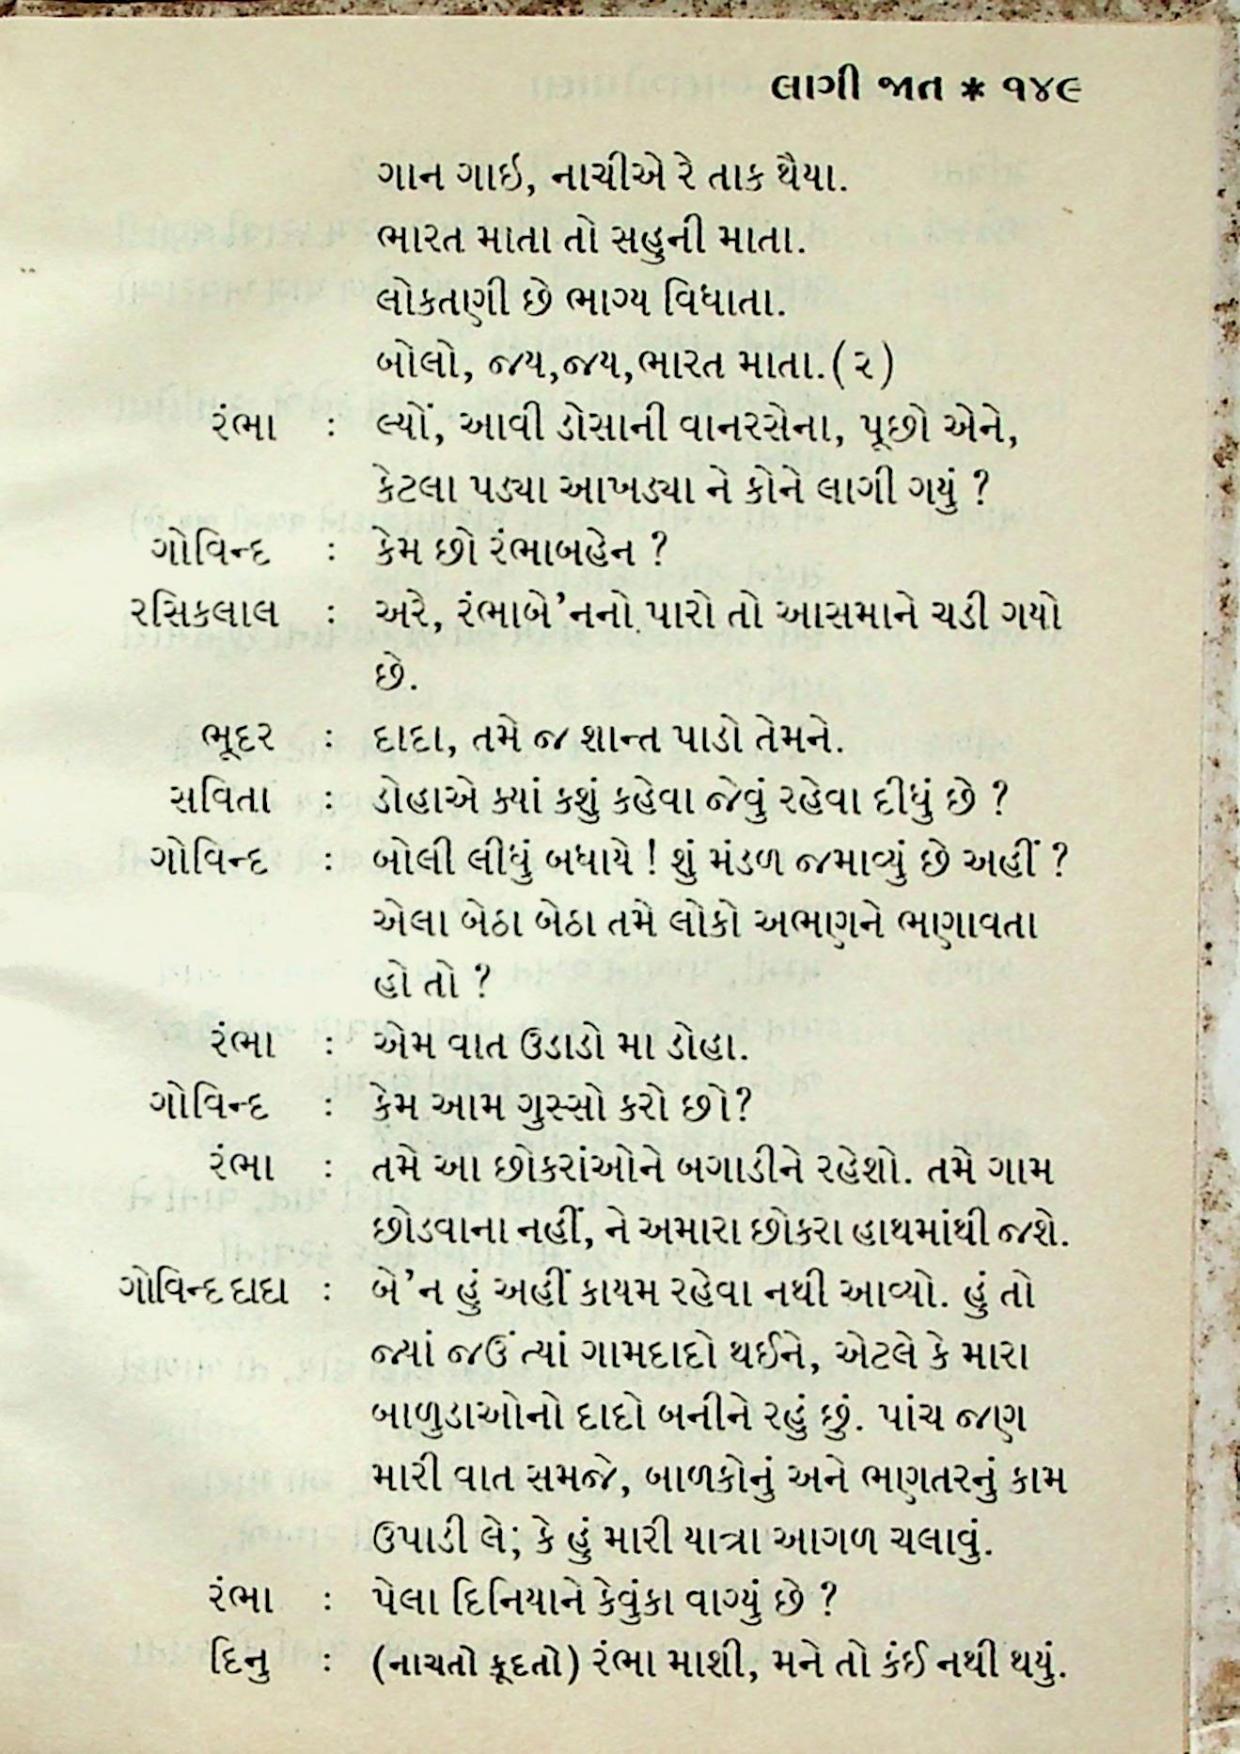 લાગી જાત * ૧૪૯
ગાન ગાઇ, નાચીએ રે તાક થૈયા.
ભારત માતા તો સહુની માતા.
લોકતણી છે ભાગ્ય વિધાતા.
બોલો, જય,જય,ભારત માતા.(૨)
રંભા : લ્યોં, આવી ડોસાની વાનરસેના, પૂછો એને,
કેટલા પડ્યા આખડ્યા ને કોને લાગી ગયું ?
ગોવિન્દ : કેમ છો રંભાબહેન ?
રસિકલાલ : અરે, રંભાબે'નનો પારો તો આસમાને ચડી ગયો
છે.
ભૂદર : દાદા, તમે જ શાન્ત પાડો તેમને.
સવિતા : ડોહાએ ક્યાં કશું કહેવા જેવું રહેવા દીધું છે ?
ગોવિન્દ : બોલી લીધું બધાયે ! શું મંડળ જમાવ્યું છે અહીં ?
એલા બેઠા બેઠા તમે લોકો અભણને ભણાવતા
હો તો ?
રંભા : એમ વાત ઉડાડો મા ડોહા.
ગોવિન્દ : કેમ આમ ગુસ્સો કરો છો?
રંભા : તમે આ છોકરાંઓને બગાડીને રહેશો. તમે ગામ
છોડવાના નહીં, ને અમારા છોકરા હાથમાંથી જશે.
ગોવિન્દ દાદા : બે'ન હું અહીં કાયમ રહેવા નથી આવ્યો. હું તો
જ્યાં જઉં ત્યાં ગામદાદો થઈને, એટલે કે મારા
બાળુડાઓનો દાદો બનીને રહું છું. પાંચ જણ
મારી વાત સમજે, બાળકોનું અને ભણતરનું કામ
ઉપાડી લે; કે હું મારી યાત્રા આગળ ચલાવું.
રંભા : પેલા દિનિયાને કેવુંકા વાગ્યું છે ?
દિનુ : (નાચતો કૂદતો) રંભા માશી, મને તો કંઈ નથી થયું.